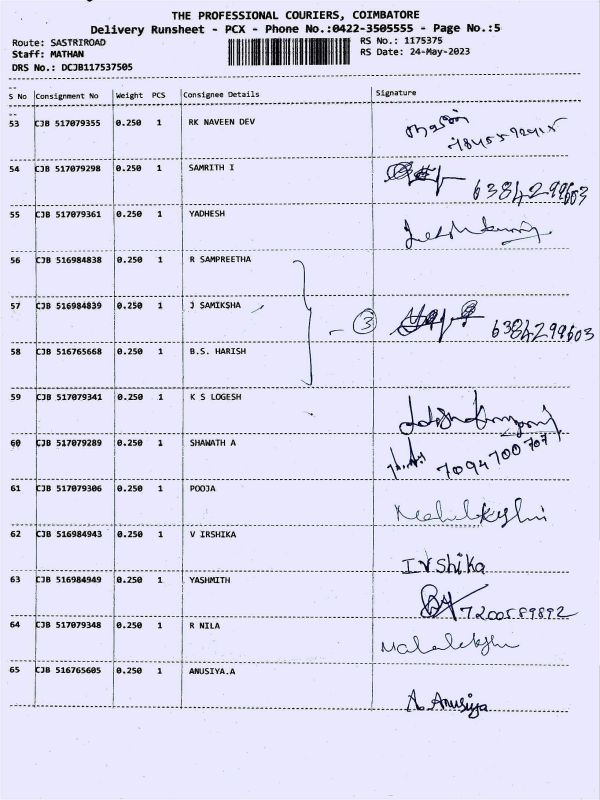 THE PROFESSIONAL COURIERS, COIMBATORE
Delivery Runsheet - PCX - Phone No.:0422-3505555 - Page No.:5
Route: SASTRIROAD RS No.: 1175375
Staff: MATHAN RS Date: 24-May-2023
DRS No.: DCJB117537505
S No Consignment No Weight PCS Consignee Details Signature
53 CJB 517079355 0.250 1 RK NAVEEN DEV
54 CJB 517079298 0.250 1 SAMRITH I
6384299603
55 CJB 517079361 0.250 1 YADHESH
56 CJB 516984838 0.250 1 R SAMPREETHA
57 CJB 516984839 0.250 1 J SAMIKSHA
- 3 6384299603
58 CJB 516765668 0.250 1 B.S. HARISH
59 CJB 517079341 0.250 1 K S LOGESH
60 CJB 517079289 0.250 1 SHAWATH A
7094700707
61 CJB 517079306 0.250 1 POOJA
62 CJB 516984943 0.250 1 V IRSHIKA
IrShika
63 CJB 516984949 0.250 1 YASHMITH
7200589892
64 CJB 517079348 0.250 1 R NILA
65 CJB 516765605 0.250 1 ANUSIYA.A
A. Anusiya